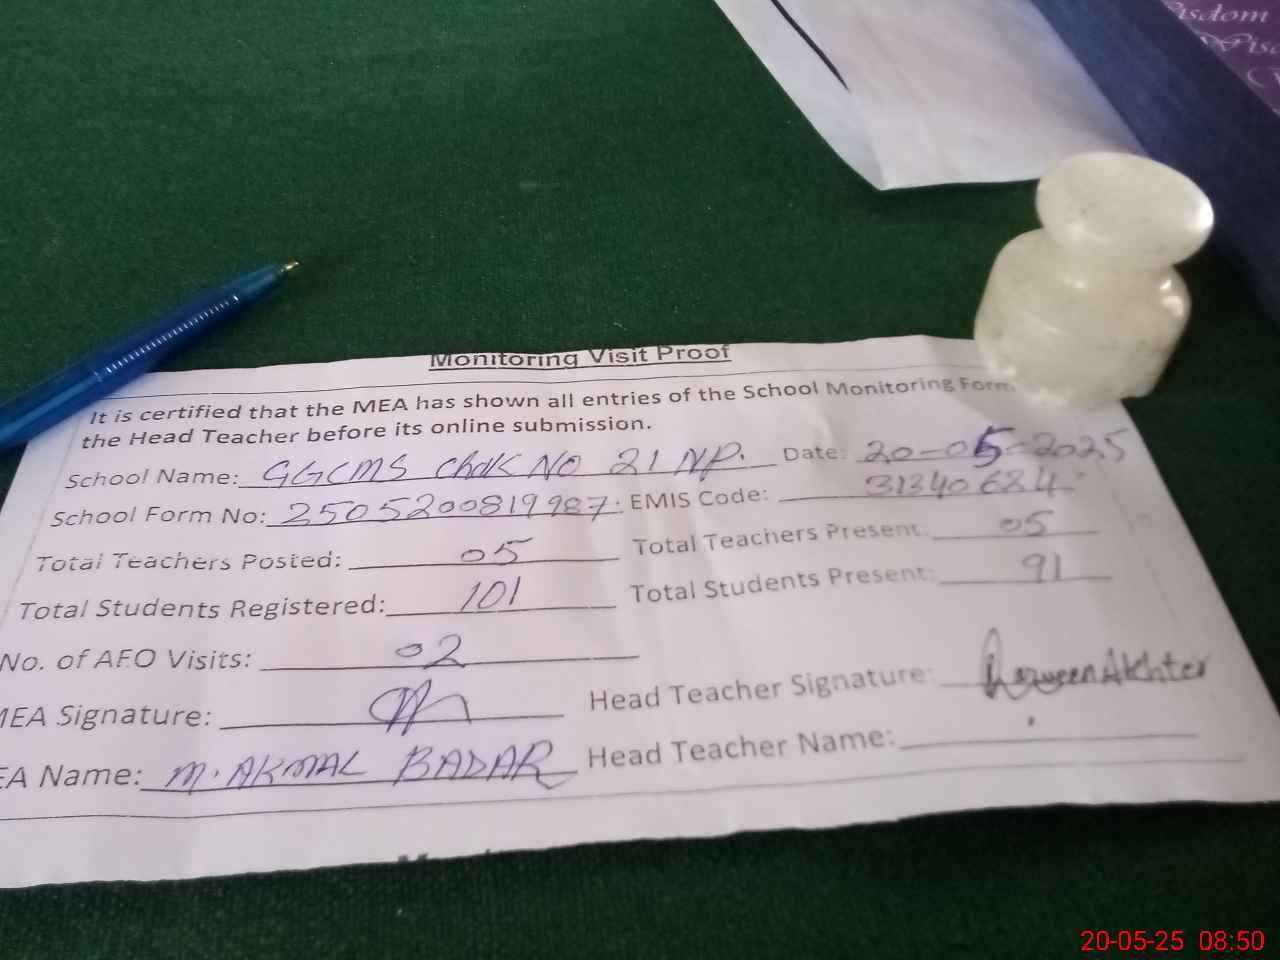 isdom
Monitoring Visit Proof
It is certified that the MEA has shown all entries of the School Monitoring Form
the Head Teacher before its online submission.
School Name: GGCMS Chak NO 21 NP. Date: 20-05-2025
School Form No: 2505200819987. EMIS Code: 31340684
Total Teachers Posted: 05 Total Teachers Present: 05
Total Students Registered: 101 Total Students Present: 91
No. of AEO Visits: 02
MEA Signature: Head Teacher Signature: Parween Akhter
EA Name: M. AKMAL BADAR Head Teacher Name:
20-05-25 08:50